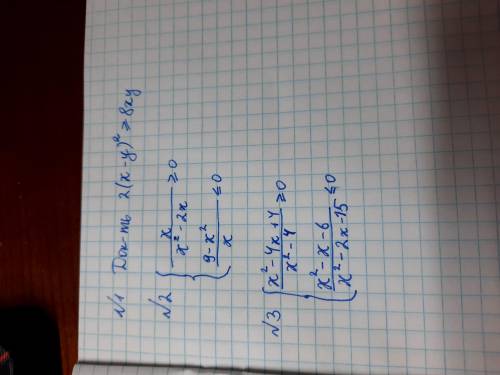 №1 Док-ть 2(x-y)² ≥ 8xy
№2 { x/(x²-2x) ≥ 0
(9-x²)/x ≤ 0
№3 { (x²-4x+4)/(x²-4) ≥ 0
(x²-x-6)/(x²-2x-15) ≤ 0